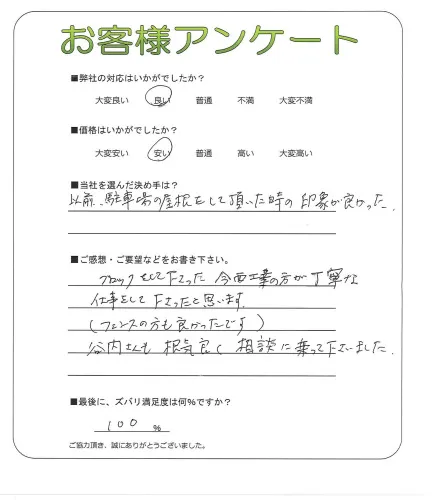 お客様アンケート
■弊社の対応はいかがでしたか?
大変良い 良い 普通 不満 大変不満
■価格はいかがでしたか?
大変安い 安い 普通 高い 大変高い
■当社を選んだ決め手は?
以前、駐車場の屋根をして頂いた時の印象が良かった。
■ご感想・ご要望などをお書き下さい。
ブロックをして下さった今西工業の方が丁寧な
仕事をして下さったと思います。
(フェンスの方も良かったです)
谷内さんも根気良く相談に乗って下さいました。
■最後に、ズバリ満足度は何%ですか?
100 %
ご協力頂き、誠にありがとうございました。